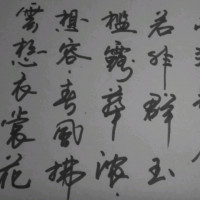 雲想衣裳花
想容春風拂
檻露華濃
若非群玉